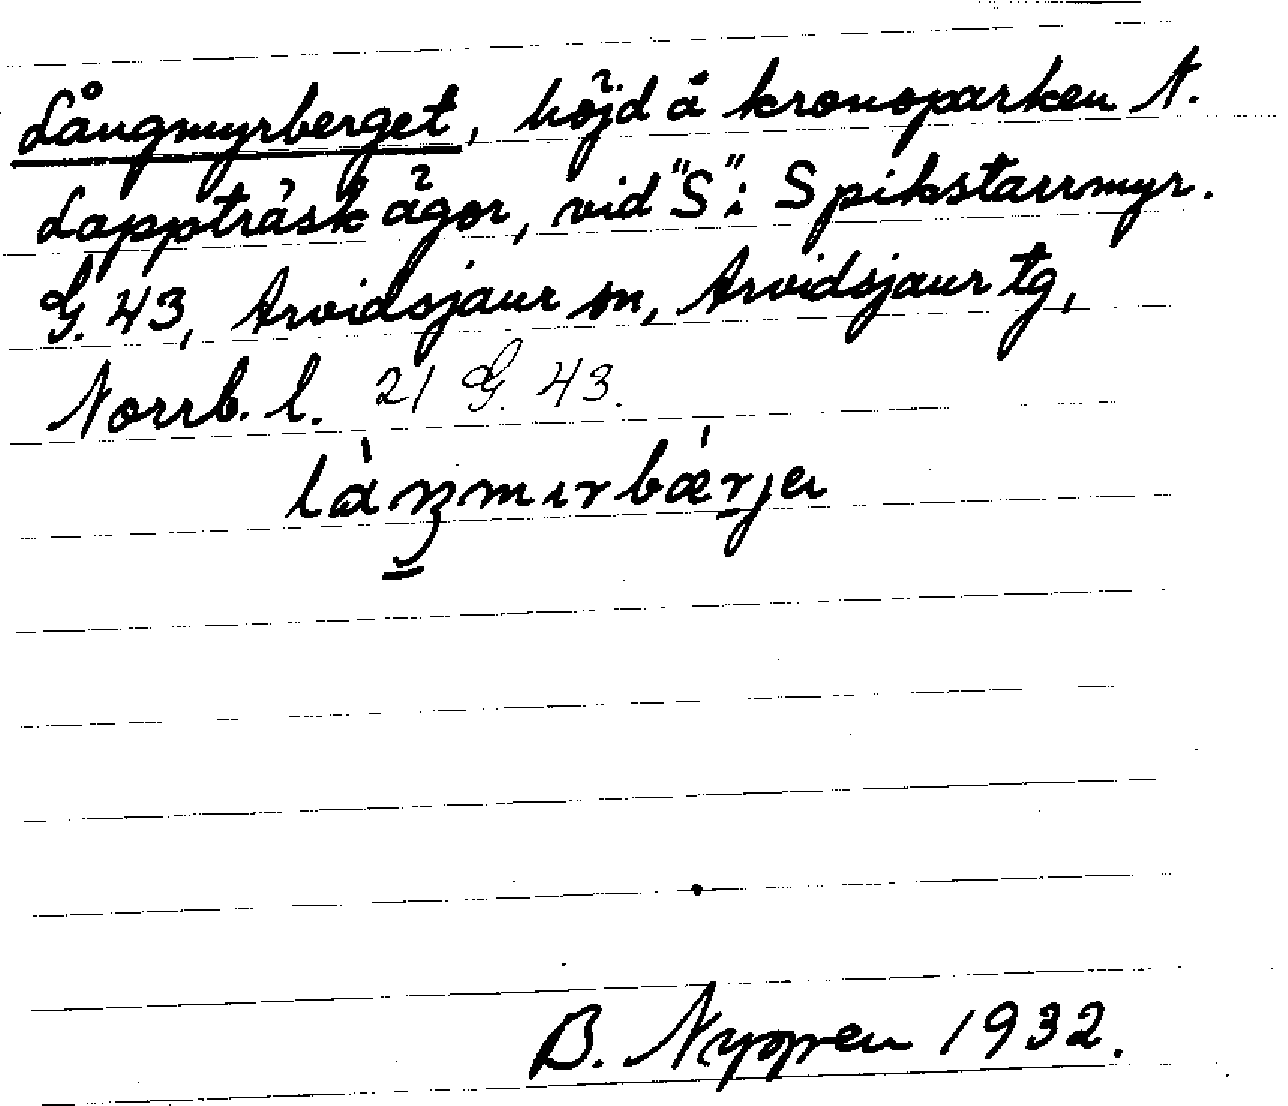 Långmyrberget, höjd å kronoparken N.
Lappträsk ägor, vid "S" i Spikstarrmyr.
G. 43, Arvidsjaur sn, Arvidsjaur tg,
Norrb. l. 21 G. 43.
B. Nygren 1932.